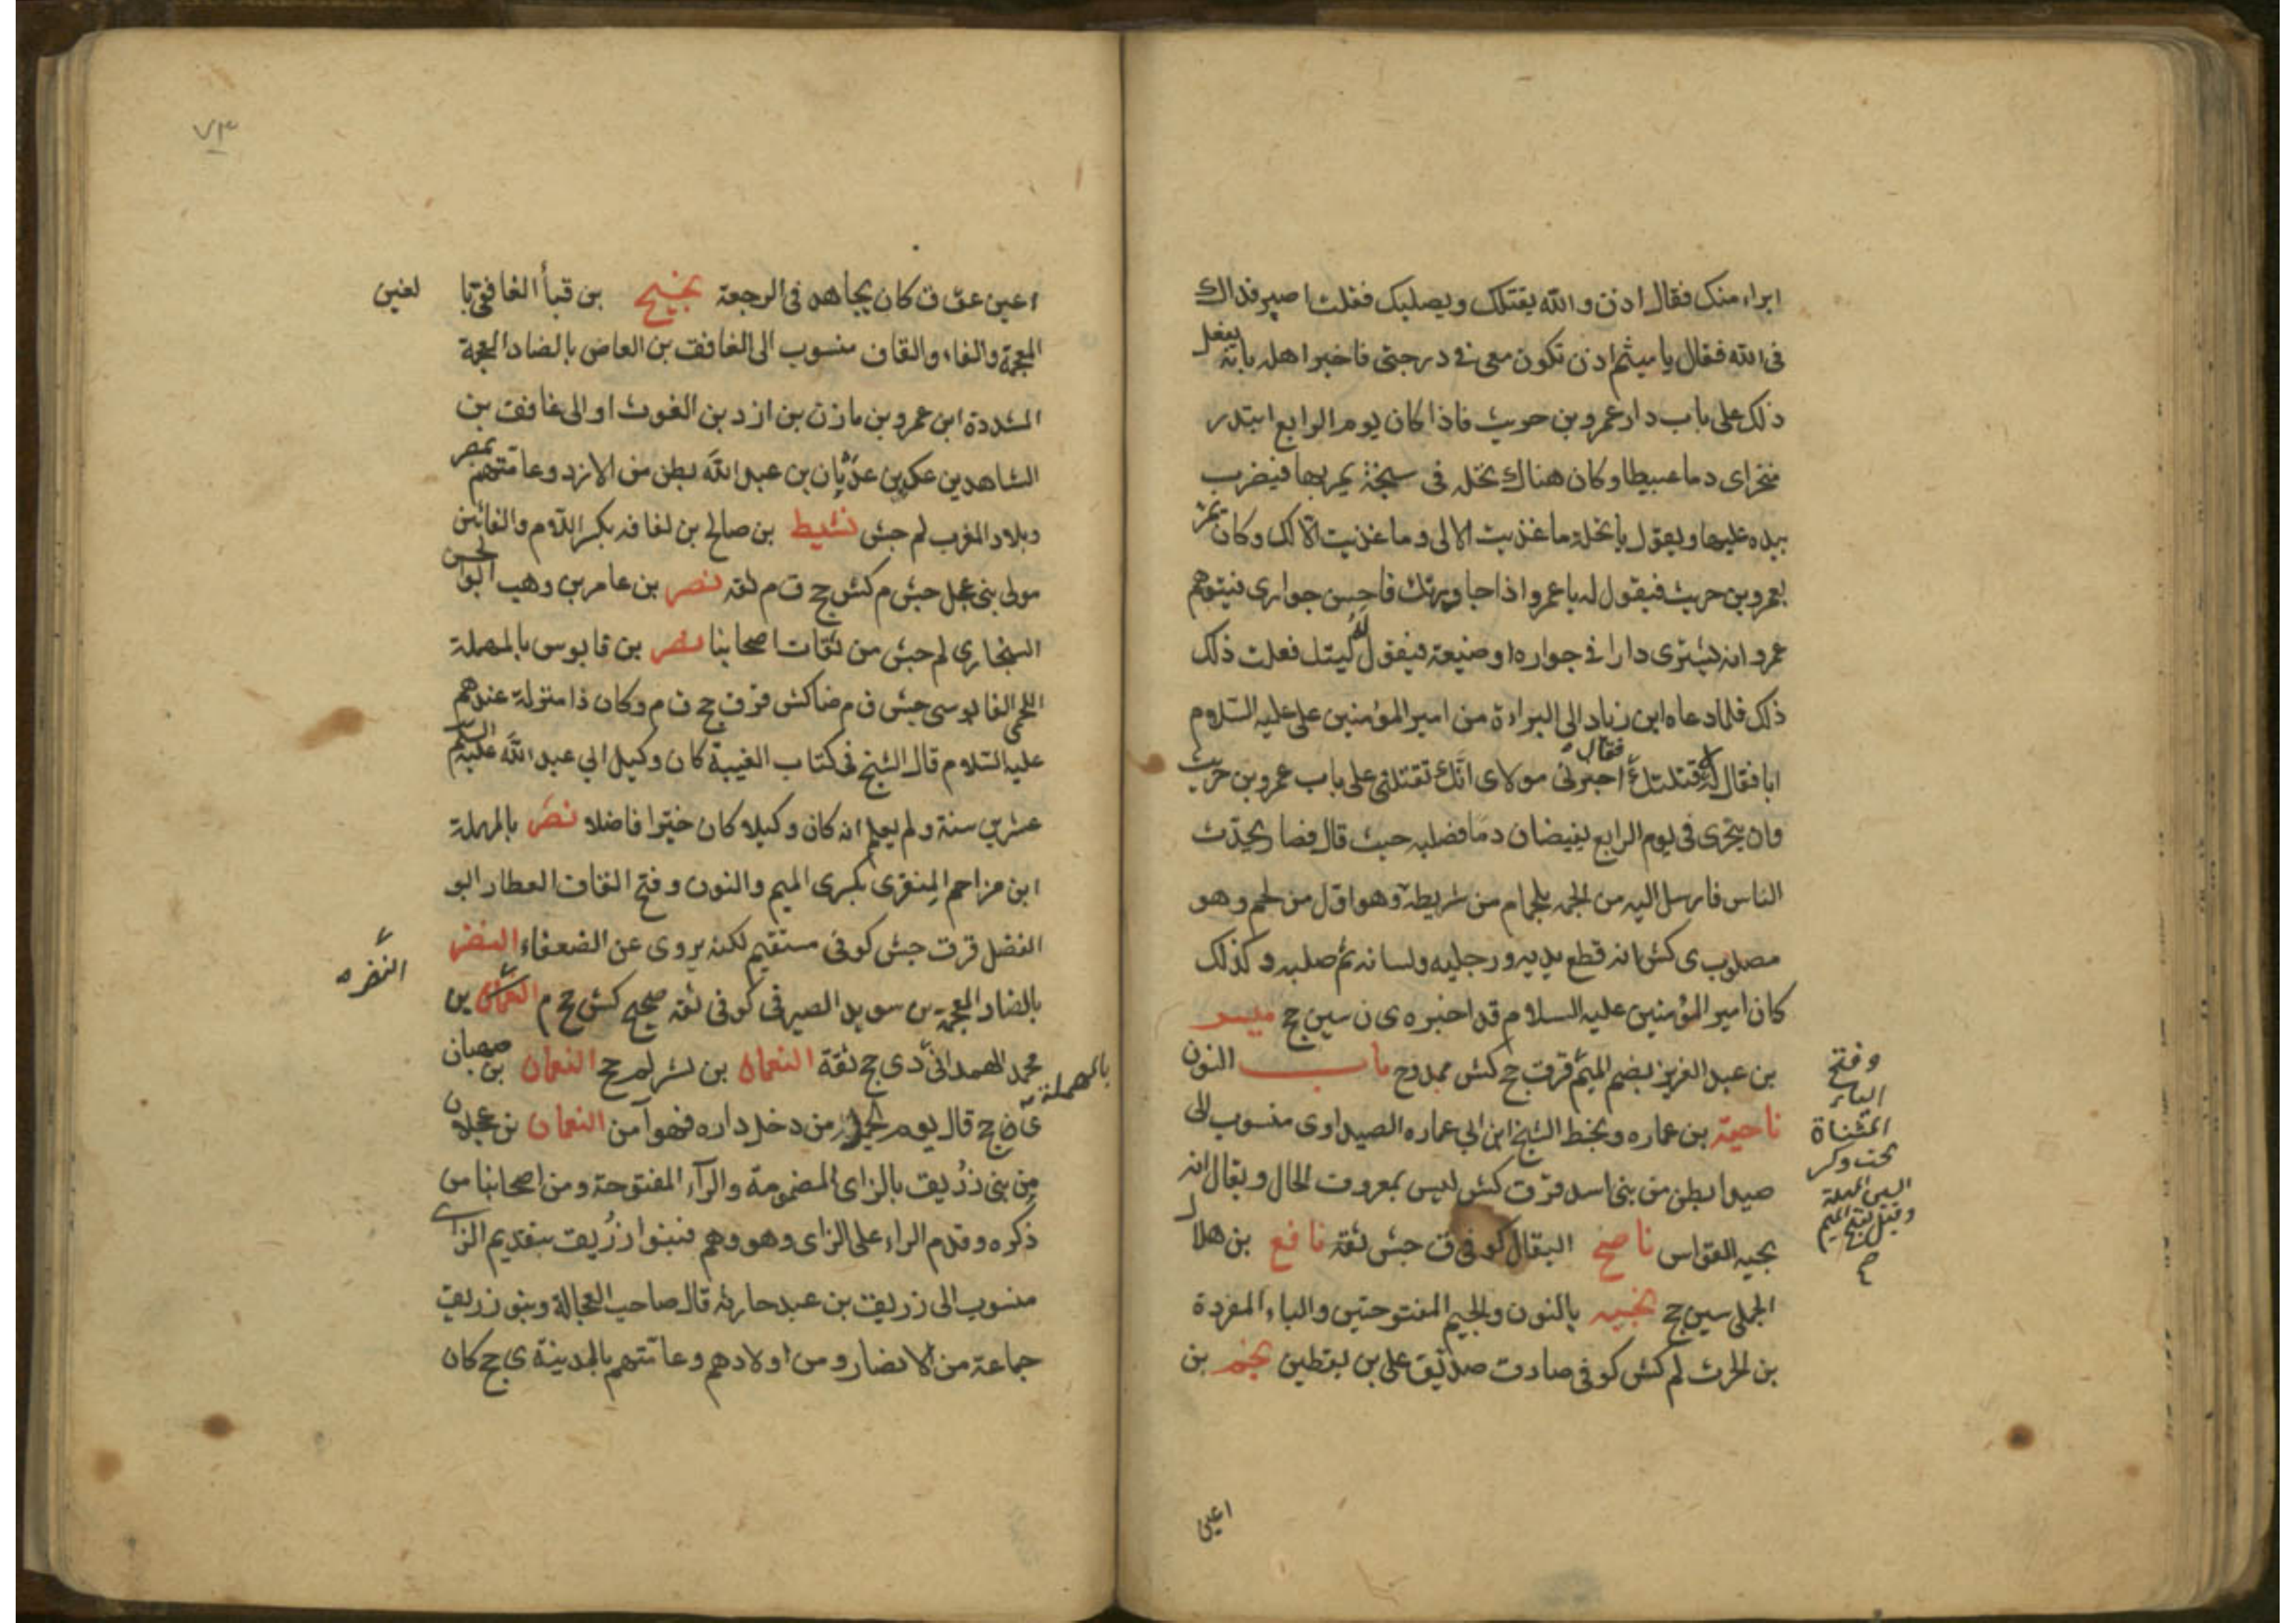 ابراء منك فقال اذن والله يقتلك ويصلبك فقلت اصبر فذاك
فى الله فقال يا ميثم اذن تكون معى فى درجتى فاخبر اهله بانه يفعل
ذلك على باب دار عمرو بن حريث فاذا كان يوم الرابع ابتدر
منخراى دما عبيطا وكان هناك نخله فى سبخة يمر بها فيضرب
بيده عليها ويقول يا نخلة ما غذيت الا لى وما غذيت الا لك وكان يمر
بعمرو بن حريث فيقول له يا عمرو اذا جاورتك فاحسن جوارى فيتوهم
عمرو انه يشترى دارا فى جواره او ضيعة فيقول له ليتك فعلت ذلك
ذلك فلما دعاه ابن زياد الى البراءة من امير المؤمنين على عليه السلام
ابا فقال له قتلتك فقال اخبرنى مولاى انك تقتلنى على باب عمرو بن حريث
وان يجرى فى يوم الرابع دما فصلبه حيث قال فصار يحدث
الناس فارسل اليه من الجمه بلجام من شريطة وهو اول من لجم وهو
مصلوب ى كش انه قطع يديه ورجليه ولسانه ثم صلبه وكذلك
كان امير المؤمنين عليه السلام قد اخبره ى ن سين جخ ميسر
بن عبد العزيز بضم الميم قر ق جخ كش ممدوح باب النون
وفتح
الياء
المثناة
تحت وكسر
السين المهملة
وقيل بفتح الميم
ناجية بن عماره وبخط الشيخ ابن ابى عماره الصيداوى منسوب الى
صيدا بطن من بنى اسد قر ق كش ليس بمعروف الحال ويقال انه
بجيه القواس ناصح البقال كوفى ق جش ثقة نافع بن هلال
الجملى سين جخ نجبه بالنون والجيم المفتوحتين والباء المفردة
بن الحرث لم كش كوفى صادق صديق على بن يقطين نجم بن
اعين
٧٣
اعين عق ق كان يجاهد فى الرجعة نجيح بن قبا الغافقى با لغين
المعجمة والفاء والقاف منسوب الى الغافق بن العاص بالضاد المعجمة
المشددة ابن عمرو بن مازن بن ازد بن الغوث او الى غافق بن
الشاهد بن عك بن عدثان بن عبد الله بطن من الازد وعامتهم بمصر
وبلاد المغرب لم جش نشيط بن صالح بن لفافه بكسر اللام والفائين
مولى بنى عجل جش م كش جخ ق م ثقه نصر بن عامر بن وهب ابو الحسن
السنجارى لم جش من ثقات اصحابنا نصر بن قابوس بالمهملة
اللخمى القابوسى جش ق م ضا كش قر ق جخ ق م وكان ذا منزلة عندهم
عليه السلام قال الشيخ فى كتاب الغيبة كان وكيل ابى عبد الله عليه السلام
عشرين سنة ولم يعلم انه كان وكيلا كان خيرا فاضلا نصر بالمهملة
ابن مزاحم المنقرى بكسرى الميم والنون وفتح القاف العطار ابو
الفضل قر ق جش كوفى مستقيم لكنه يروى عن الضعفاء النضر
النضره
بالضاد المعجمة بن سويد الصيرفى كوفى ثقه صحيح كش جخ م بن
محمد الهمدانى دى جخ ثقة النعمان بن بشر لم جخ النعمان بن صهبان
بالمهملة
ى جخ قال يوم الجمل من دخل داره فهو آمن النعمان بن عجلان
من بنى زُريق بالزاى المضمومة والرآء المفتوحة ومن اصحابنا من
ذكره وقدم الراء على الزاى وهو وهم فبنوا زُريق بتقديم الزاى
منسوب الى زريق بن عبد حارثه قال صاحب العجالة وبنو زريق
جماعة من الانصار ومن اولادهم وعامتهم بالمدينة ى جخ كان